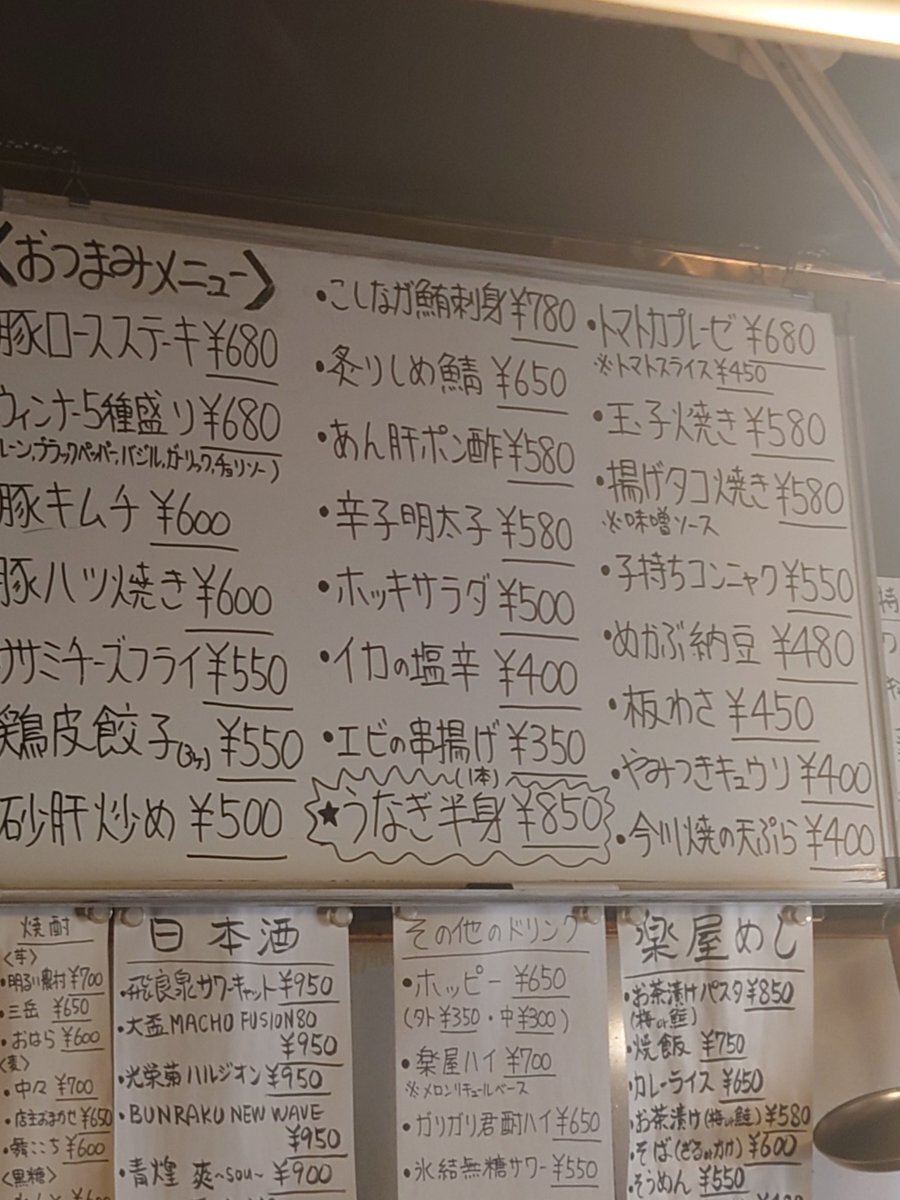 〈おつまみメニュー〉
豚ロースステーキ ¥680
ウィンナー5種盛り ¥680
レーン,ブラックペッパー,バジル,ガーリック,チョリソー)
豚キムチ ¥600
豚ハツ焼き ¥600
ササミチーズフライ ¥550
鶏皮餃子(3ケ) ¥550
砂肝炒め ¥500
・こしなが鮪刺身 ¥780
・炙りしめ鯖 ¥650
・あん肝ポン酢 ¥580
・辛子明太子 ¥580
・ホッキサラダ ¥500
・イカの塩辛 ¥400
・エビの串揚げ ¥350
(1本)
★うなぎ半身 ¥850
・トマトカプレーゼ ¥680
※トマトスライス ¥450
・玉子焼き ¥580
・揚げタコ焼き ¥580
※味噌ソース
・子持ちコンニャク ¥550
・めかぶ納豆 ¥480
・板わさ ¥450
・やみつきキュウリ ¥400
・今川焼の天ぷら ¥400
焼酎
〈芋〉
・明るい農村 ¥700
・三岳 ¥650
・おはら ¥600
〈麦〉
・中々 ¥700
・店主おまかせ ¥650
・舞ここち ¥600
〈黒糖〉
日本酒
・飛良泉サワーキャット ¥950
・大盃 MACHO FUSION80
¥950
・光栄菊ハルジオン ¥950
・BUNRAKU NEW WAVE
¥950
・青煌 爽〜sou〜 ¥900
その他のドリンク
・ホッピー ¥650
(外 ¥350・中 ¥300)
・楽屋ハイ ¥700
※メロンリキュールベース
・ガリガリ君酎ハイ ¥650
・氷結無糖サワー ¥550
楽屋めし
・お茶漬けパスタ ¥850
(梅or鮭)
・焼飯 ¥750
・カレーライス ¥650
・お茶漬け(梅or鮭) ¥580
・そば(ざるorカケ) ¥600
・そうめん ¥550